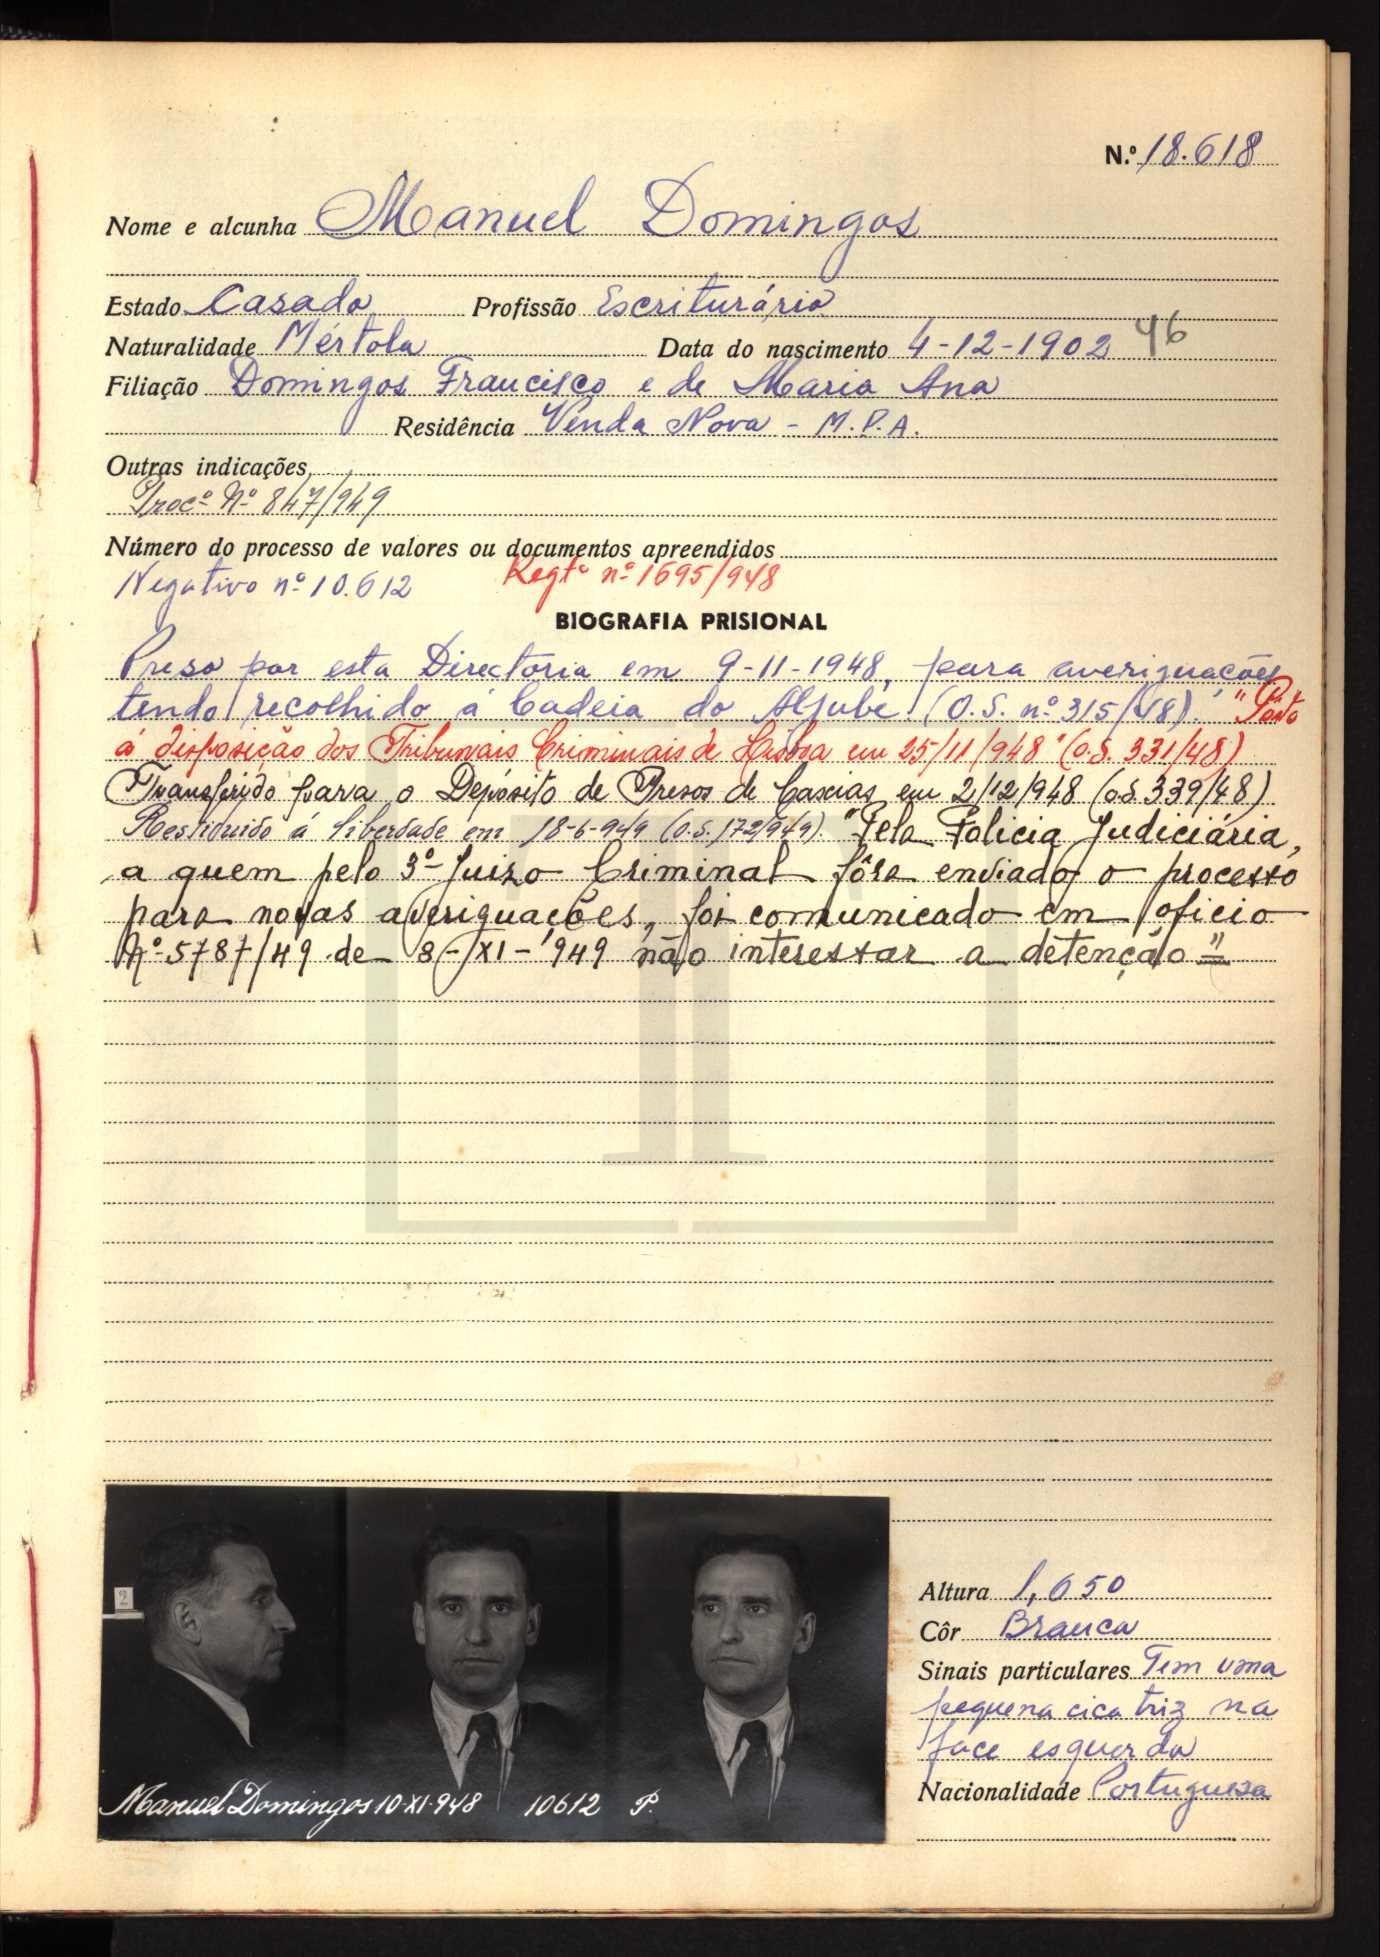 N.º 18.618
Nome e alcunha Manuel Domingos
Estado Casado Profissão Escriturário
Naturalidade Mértola Data do nascimento 4-12-1902 46
Filiação Domingos Francisco e de Maria Ana
Residência Venda Nova - M.P.A.
Outras indicações
Procº Nº 847/949
Número do processo de valores ou documentos apreendidos
Negativo nº 10.612 Regtº nº 1695/948
BIOGRAFIA PRISIONAL
Preso por esta Directoria em 9-11-1948, para averiguações,
tendo recolhido á Cadeia do Aljube (O.S. nº 315/48). "Posto
á disposição dos Tribunais Criminais de Lisboa em 25/11/948" (O.S. 331/48)
Transferido para o Depósito de Presos de Caxias em 2/12/948 (o.S. 339/48)
Restituido á liberdade em 18-6-949 (O.S. 172/949). "Pela Policia Judiciária,
a quem pelo 3º Juizo Criminal fôra enviado o processo
para novas averiguações, foi comunicado em oficio
Nº 5787/49 de 8-XI-949 não interessar a detenção"
2
Manuel Domingos 10-XI-948 10612 P.
Altura 1,650
Côr Branca
Sinais particulares Tem uma
pequena cicatriz na
face esquerda
Nacionalidade Portuguesa